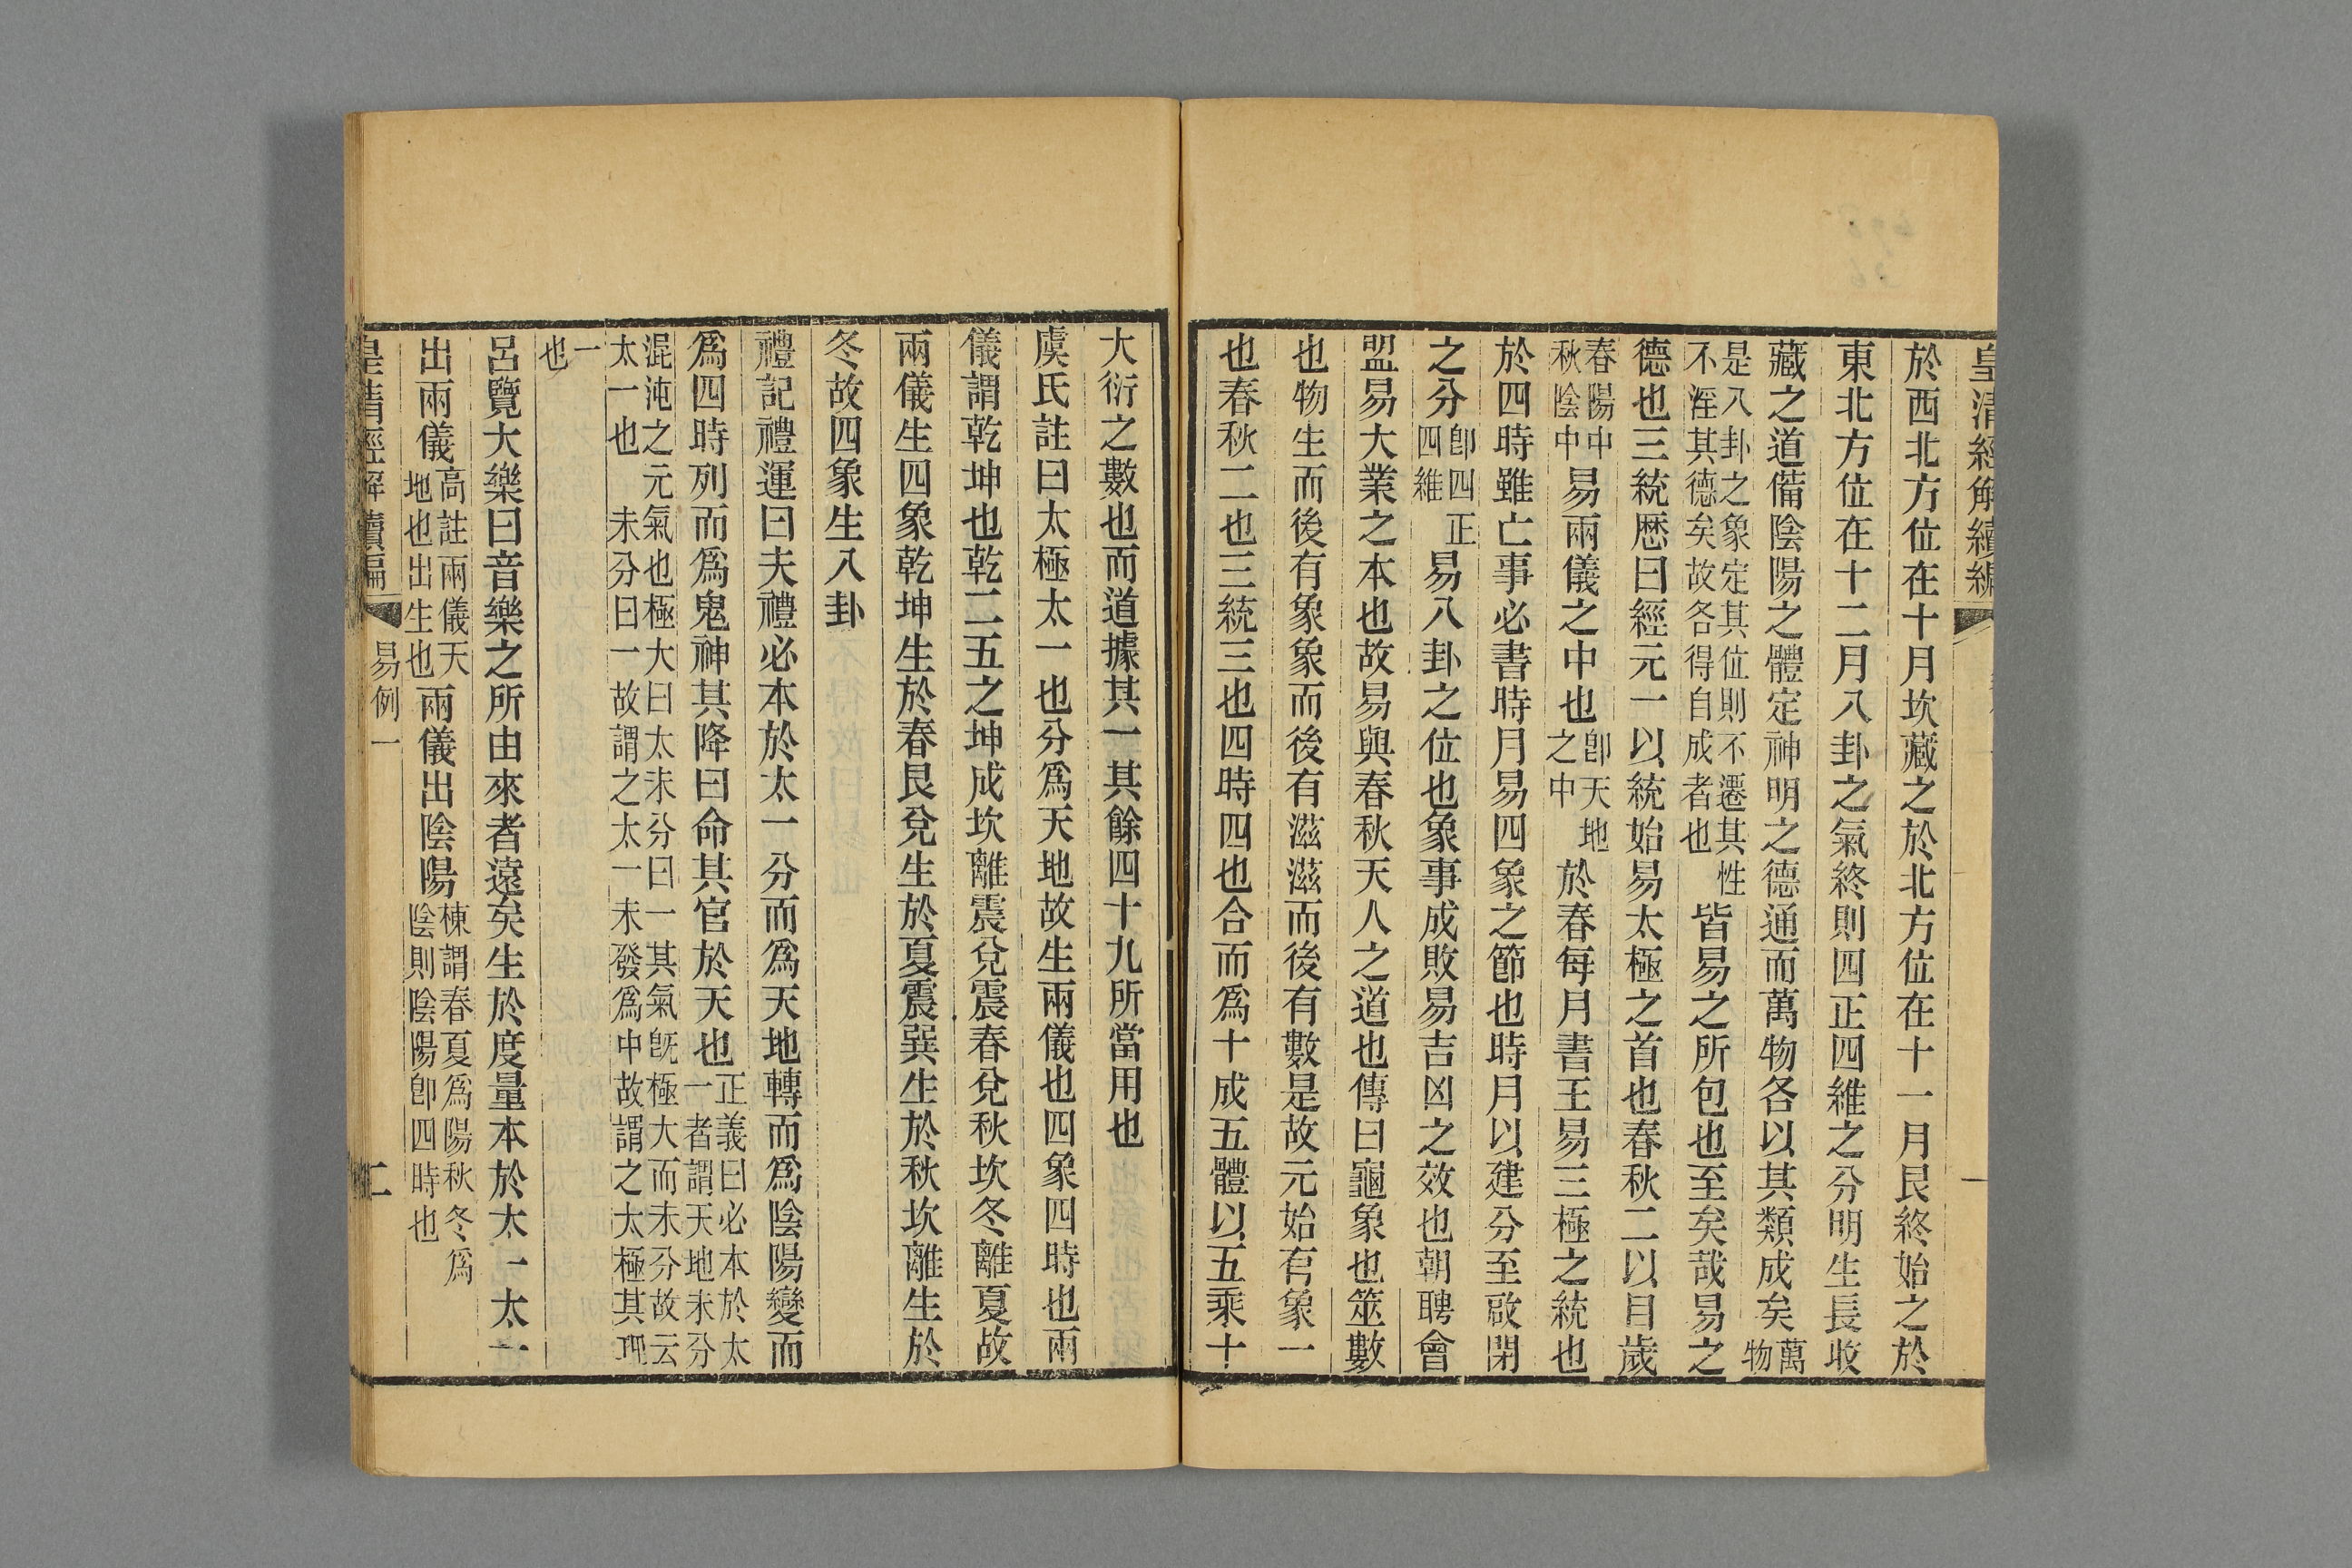 皇清經解續編
於西北方位在十月坎藏之於北方位在十一月艮終始之於
東北方位在十二月八卦之氣終則四正四維之分明生長收
藏之道備陰陽之體定神明之德通而萬物各以其類成矣萬
物
是八卦之象定其位則不遷其性
不淫其德矣故各得自成者也
皆易之所包也至矣哉易之
德也三統歷曰經元一以統始易太極之首也春秋二以目歲
春陽中
秋陰中
易兩儀之中也
卽天地
之中
於春每月書王易三極之統也
於四時雖亡事必書時月易四象之節也時月以建分至啟閉
之分
卽四正
四維
易八卦之位也象事成敗易吉凶之效也朝聘會
盟易大業之本也故易與春秋天人之道也傳曰龜象也筮數
也物生而後有象象而後有滋滋而後有數是故元始有象一
也春秋二也三統三也四時四也合而爲十成五體以五乘十
大衍之數也而道據其一其餘四十九所當用也
虞氏註曰太極太一也分爲天地故生兩儀也四象四時也兩
儀謂乾坤也乾二五之坤成坎離震兌震春兌秋坎冬離夏故
兩儀生四象乾坤生於春艮兌生於夏震巽生於秋坎離生於
冬故四象生八卦
禮記禮運曰夫禮必本於太一分而爲天地轉而爲陰陽變而
爲四時列而爲鬼神其降曰命其官於天也
正義曰必本於太
一者謂天地未分
混沌之元氣也極大曰太未分曰一其氣旣極大而未分故云
太一也 未分曰一故謂之太一未發爲中故謂之太極其理
一
也
呂覽大樂曰音樂之所由來者遠矣生於度量本於太一太一
出兩儀
高註兩儀天
地也出生也
兩儀出陰陽
棟謂春夏爲陽秋冬爲
陰則陰陽卽四時也
皇清經解續編
易例一
二